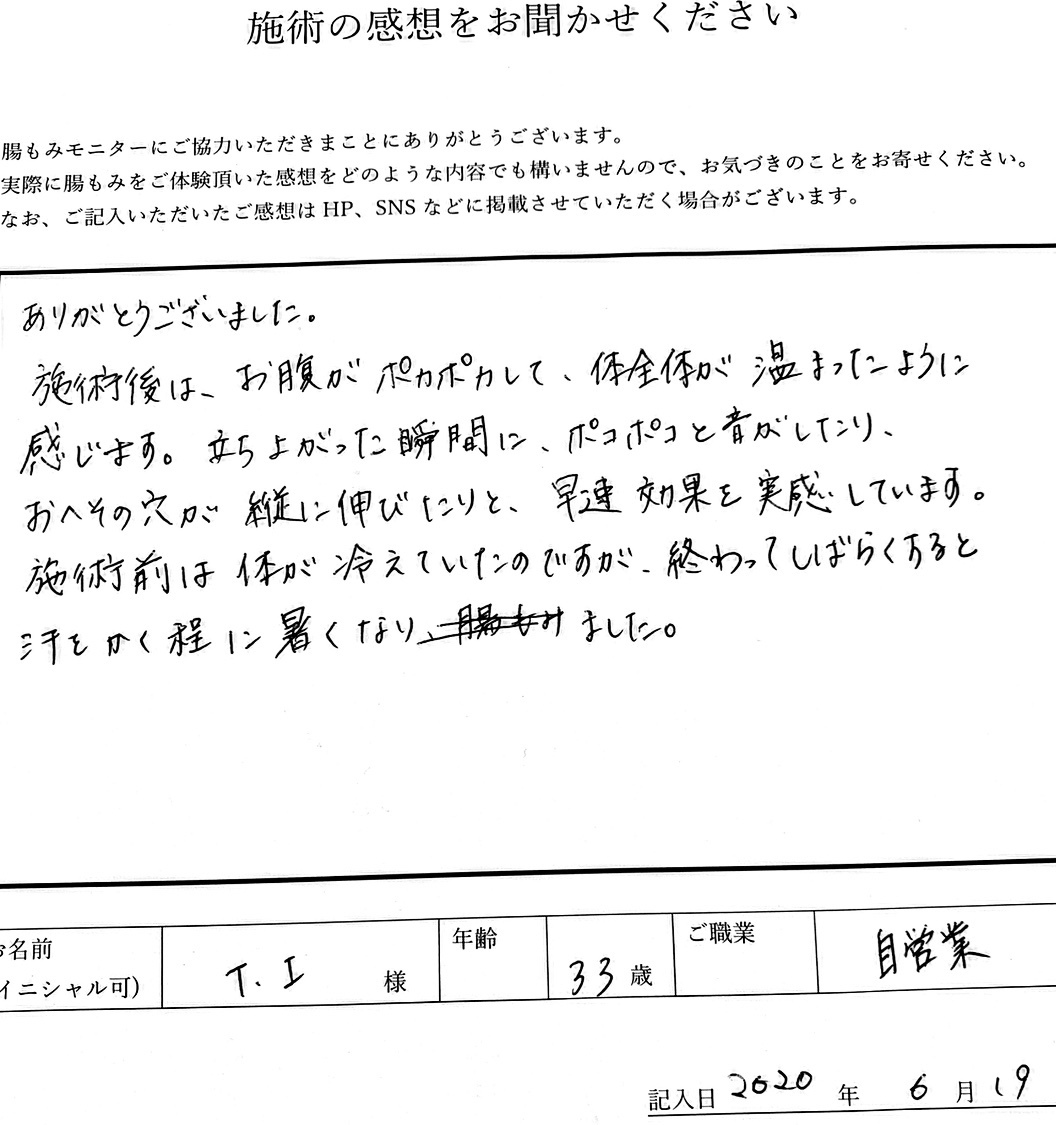 施術の感想をお聞かせください
腸もみモニターにご協力いただきまことにありがとうございます。
実際に腸もみをご体験頂いた感想をどのような内容でも構いませんので、お気づきのことをお寄せください。
なお、ご記入いただいたご感想は HP、SNS などに掲載させていただく場合がございます。
ありがとうございました。
施術後は、お腹がポカポカして、体全体が温まったように
感じます。立ち上がった瞬間に、ポコポコと音がしたり、
おへその穴が縦に伸びたりと、早速効果を実感しています。
施術前は体が冷えていたのですが、終わってしばらくすると
汗をかく程に暑くなり、腸もみました。
お名前 T.I 様 年齢 33 歳 ご職業 自営業
イニシャル可)
記入日 2020 年 6 月 19